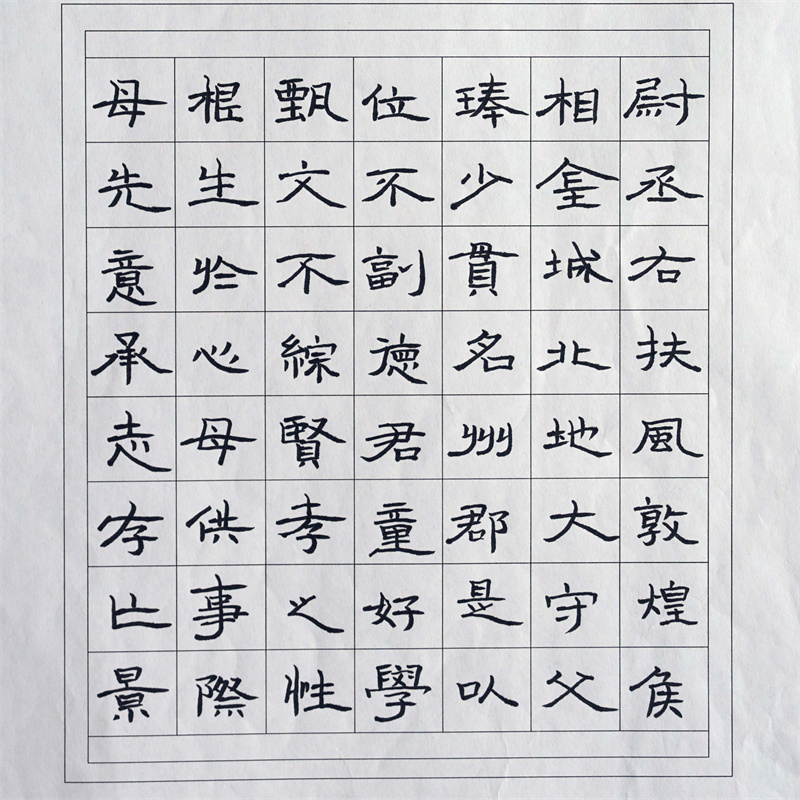 尉丞右扶風敦煌侯
相金城北地大守父
琫少貫名州郡是以
位不副德君童好學
甄文不綜賢孝之性
根生於心母供事際
母先意承志存亡景